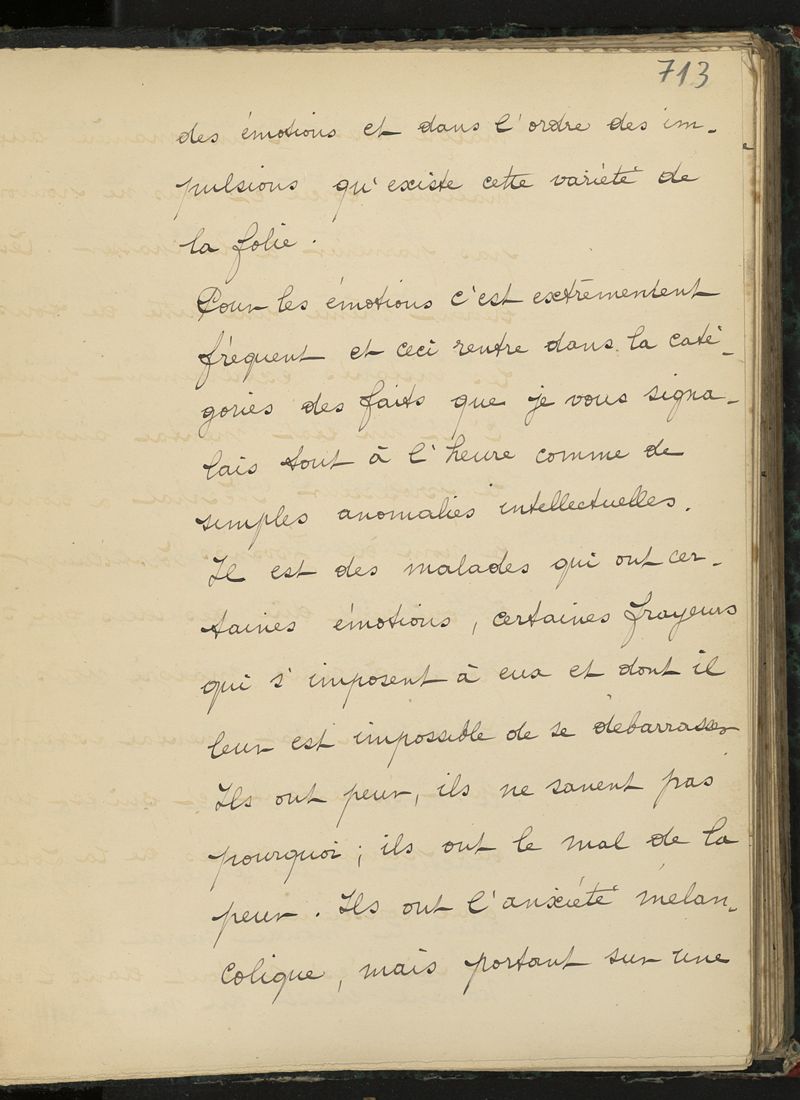 713
des émotions et dans l'ordre des im-
pulsions qu'existe cette variété de
la folie.
Pour les émotions c'est extrêmement
fréquent et ceci rentre dans la caté-
gories des faits que je vous signa-
lais tout à l'heure comme de
simples anomalies intellectuelles.
Il est des malades qui ont cer-
taines émotions, certaines frayeurs
qui s'imposent à eux et dont il
leur est impossible de se débarrasser
Ils ont peur, ils ne savent pas
pourquoi; ils ont le mal de la
peur. Ils ont l'anxiété mélan-
colique, mais portant sur une